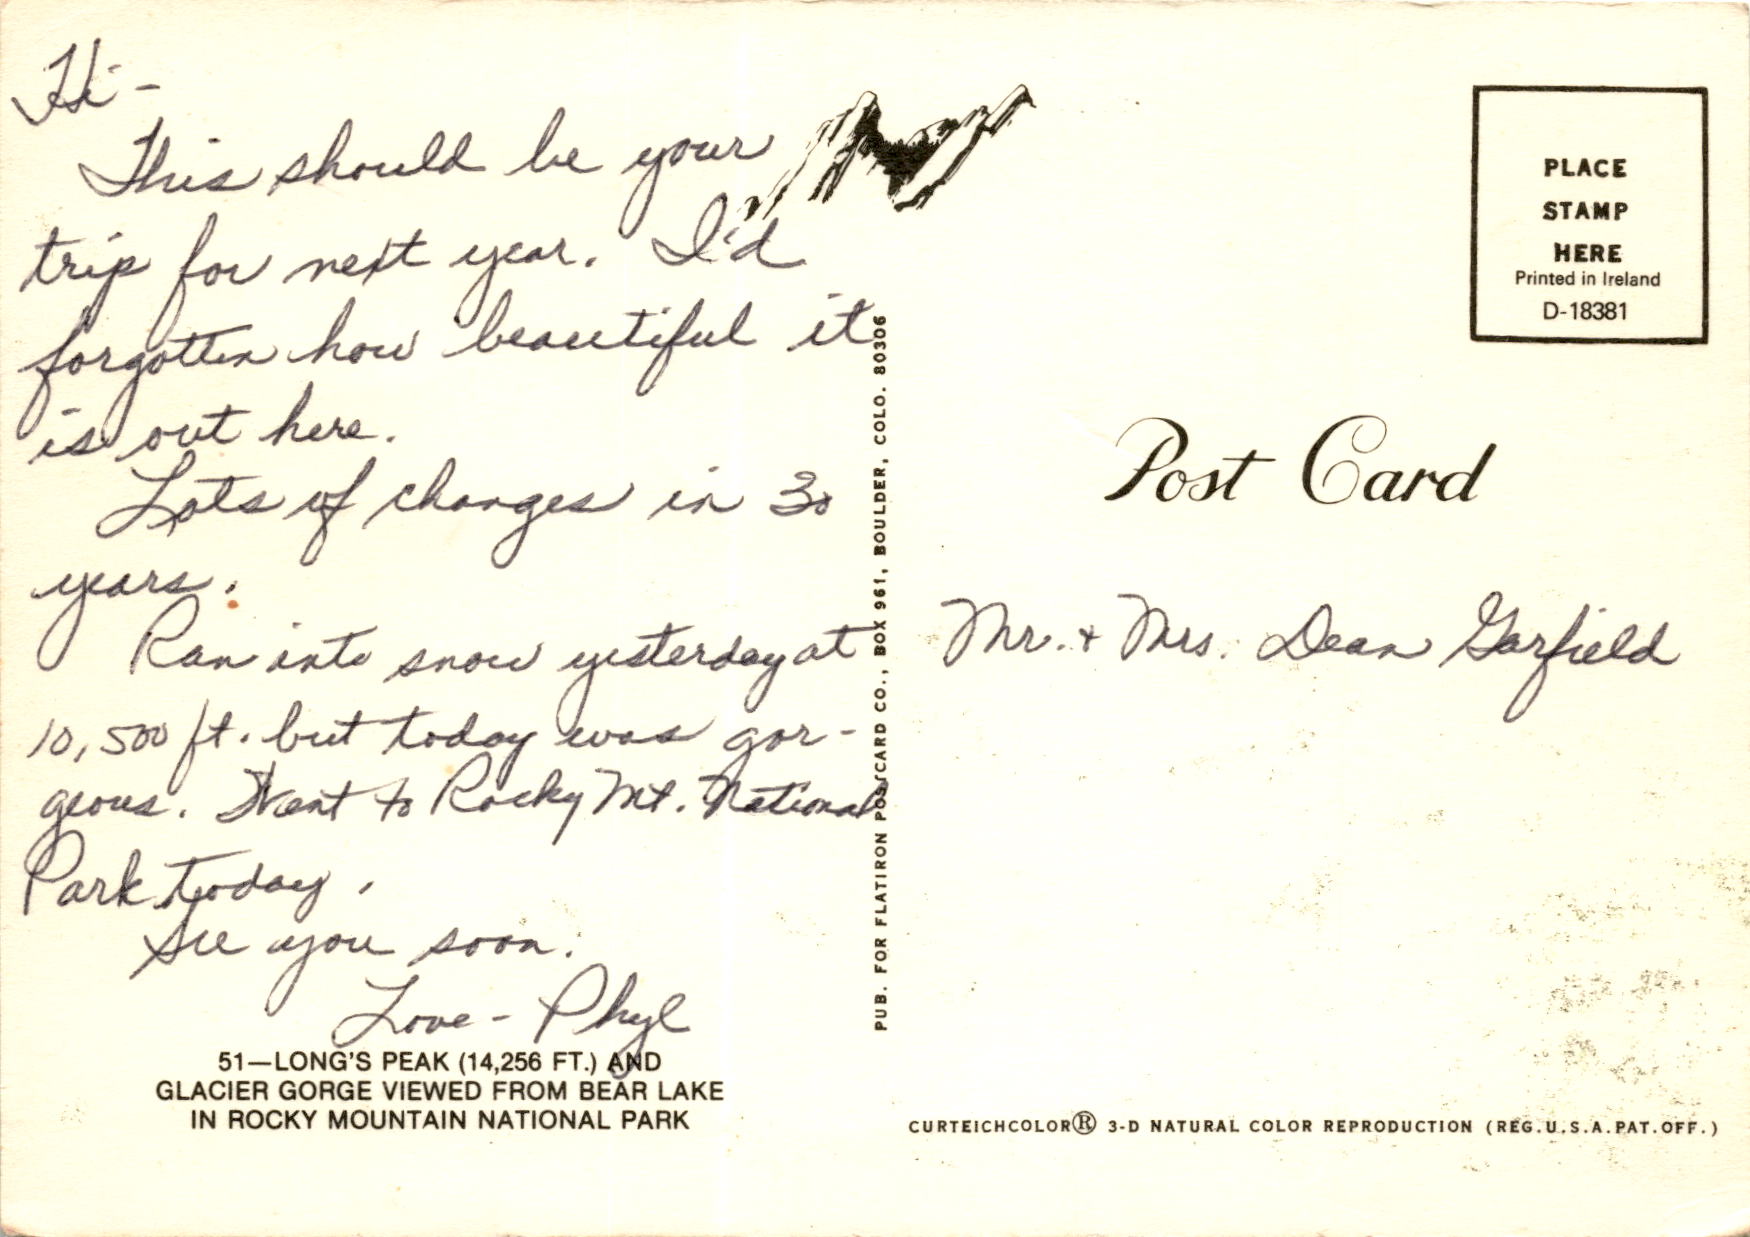 Hi -
This should be your
trip for next year. I'd
forgotten how beautiful it
is out here.
Lots of changes in 30
years.
Ran into snow yesterday at
10,500 ft. but today was gor-
geous. Went to Rocky Mt. National
Park today.
See you soon.
Love - Phyl
51—LONG'S PEAK (14,256 FT.) AND
GLACIER GORGE VIEWED FROM BEAR LAKE
IN ROCKY MOUNTAIN NATIONAL PARK
PUB. FOR FLATIRON POSTCARD CO., BOX 961, BOULDER, COLO. 80306
PLACE
STAMP
HERE
Printed in Ireland
D-18381
Post Card
Mr. + Mrs. Dean Garfield
CURTEICHCOLOR® 3-D NATURAL COLOR REPRODUCTION (REG.U.S.A.PAT.OFF.)